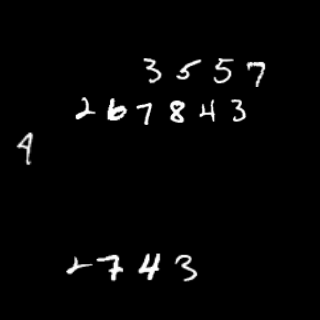 3557
267843
9
2743